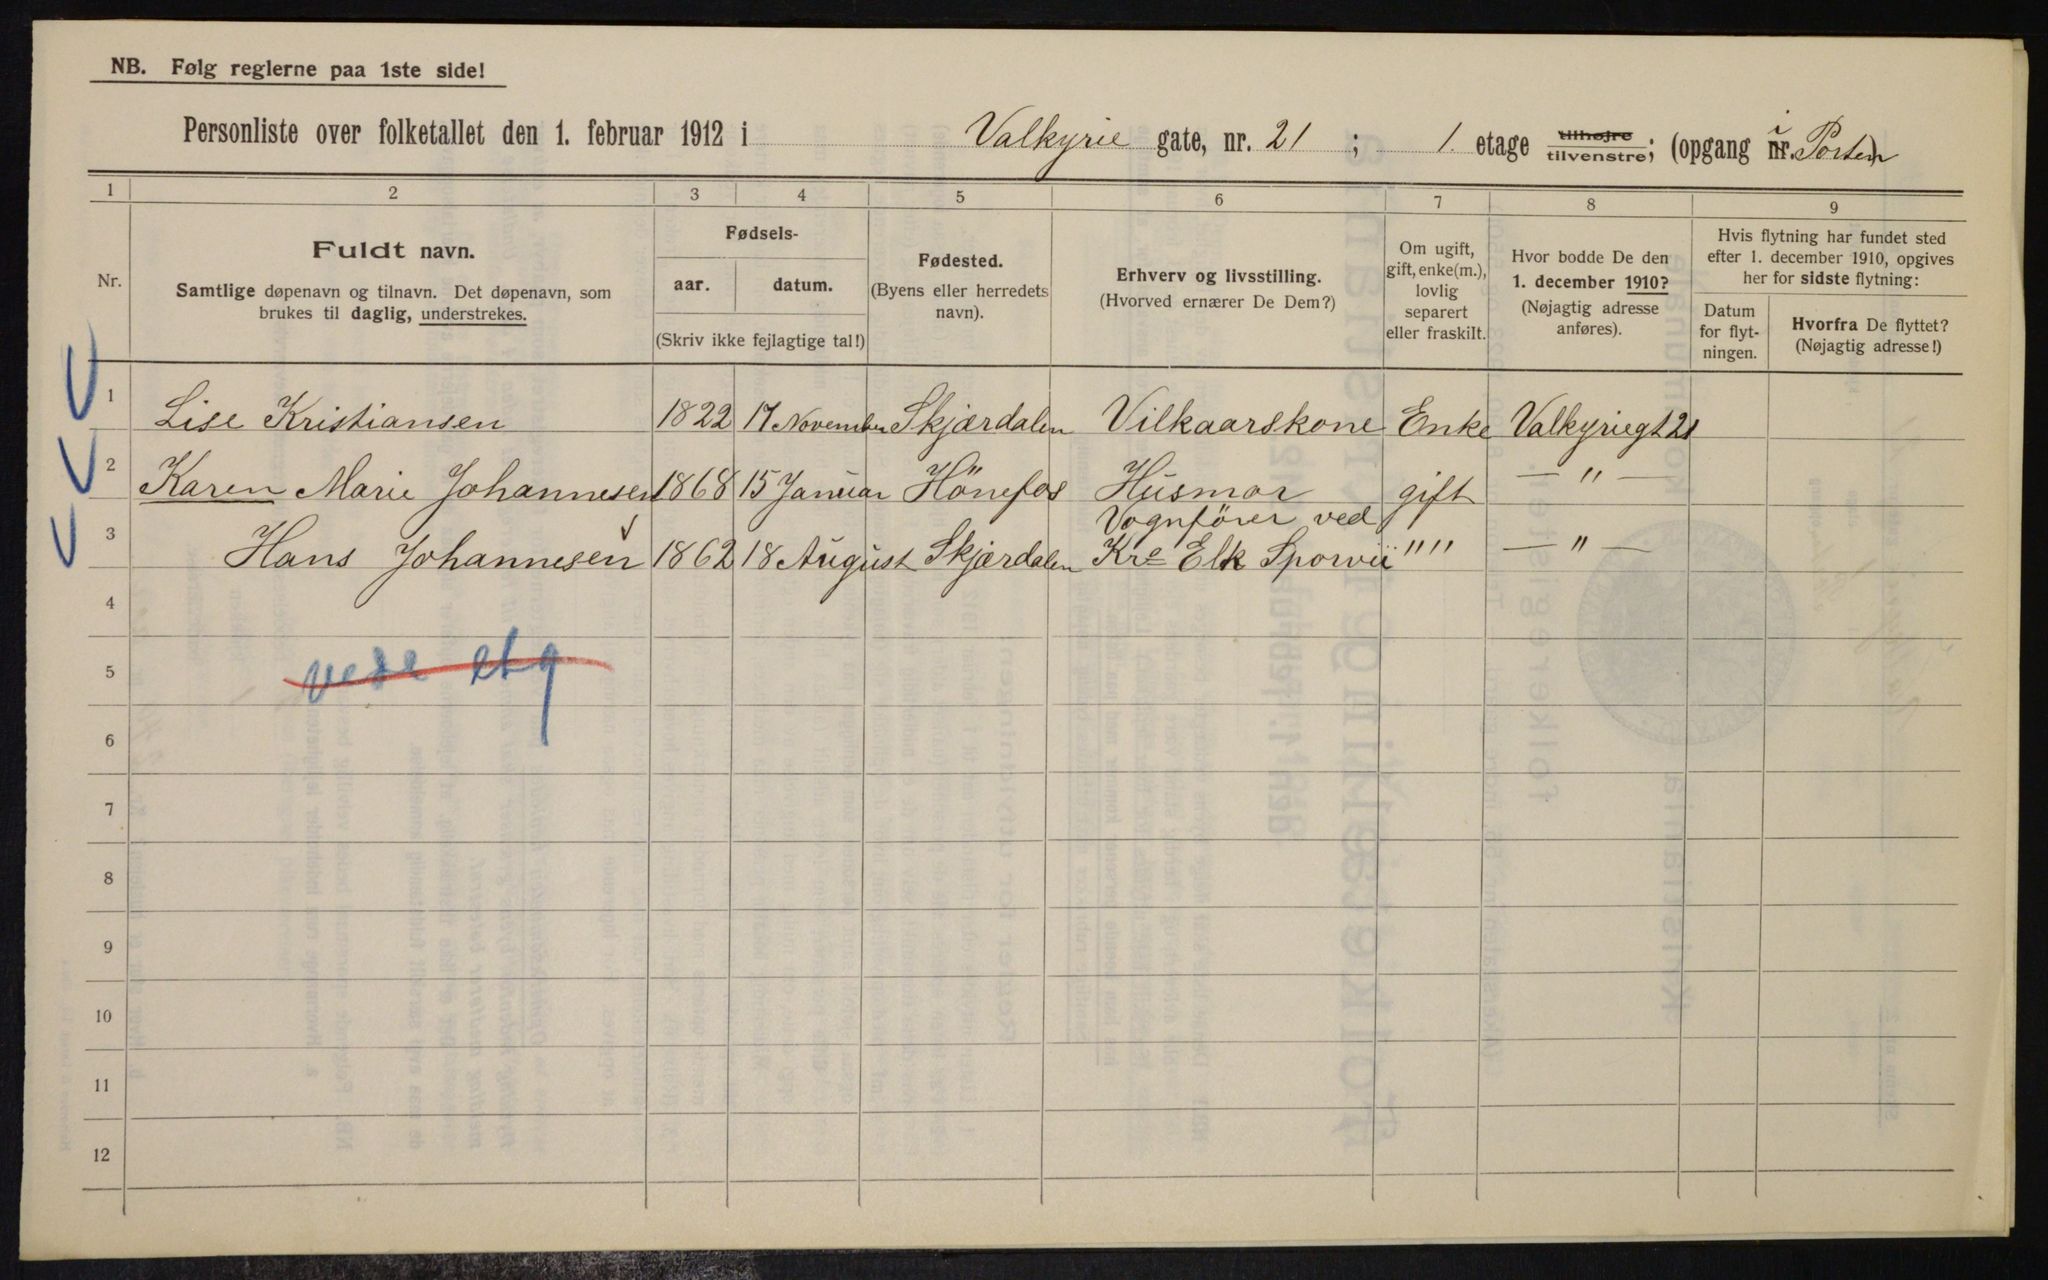 NB. Følg reglerne paa 1ste side!
Personliste over folketallet den 1. februar 1912 i Valkyrie gate, nr. 21 ; 1. etage tilhøjre tilvenstre; (opgang nr. i Porten)
1 2 3 4 5 6 7 8 9
Nr.
Fuldt navn.
Samtlige døpenavn og tilnavn. Det døpenavn, som
brukes til daglig, understrekes.
Fødsels-
aar. datum.
(Skriv ikke fejlagtige tal!)
Fødested.
(Byens eller herredets
navn).
Erhverv og livsstilling.
(Hvorved ernærer De Dem?)
Om ugift,
gift, enke(m.),
lovlig
separert
eller fraskilt.
Hvor bodde De den
1. december 1910?
(Nøjagtig adresse
anføres).
Hvis flytning har fundet sted
efter 1. december 1910, opgives
her for sidste flytning:
Datum
for flyt-
ningen.
Hvorfra De flyttet?
(Nøjagtig adresse!)
1 Lise Kristiansen 1822 17 November Skjærdalen Vilkaarskone Enke Valkyriegt 21
2 Karen Marie Johannesen 1868 15 Januar Hönefos Husmor gift — " —
Vognfører ved
3 Hans Johannesen 1862 18 August Skjærdalen Kra Elk Sporvei " " — " —
4
5
6
7
8
9
10
11
12